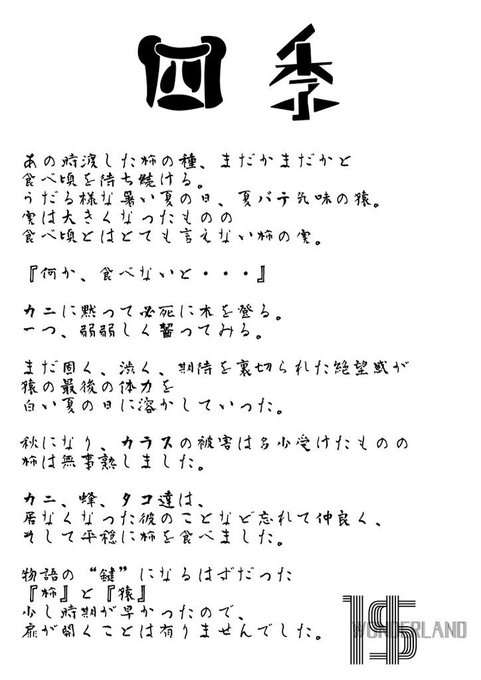 四季
あの時渡した柿の種、まだかまだかと
食べ頃を待ち続ける。
うだる様な暑い夏の日、夏バテ気味の猿。
実は大きくなったものの
食べ頃とはとても言えない柿の実。
『何か、食べないと・・・』
カニに黙って必死に木を登る。
一つ、弱弱しく齧ってみる。
まだ固く、渋く、期待を裏切られた絶望感が
猿の最後の体力を
白い夏の日に溶かしていった。
秋になり、カラスの被害は多少受けたものの
柿は無事熟しました。
カニ、蜂、タコ達は、
居なくなった彼のことなど忘れて仲良く、
そして平穏に柿を食べました。
物語の“鍵”になるはずだった
『柿』と『猿』
少し時期が早かったので、
扉が開くことは有りませんでした。
IS
WONDERLAND